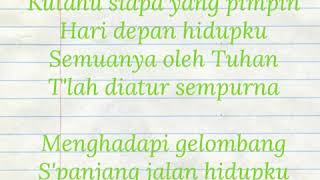 Kutahu siapa yang pimpin
Hari depan hidupku
Semuanya oleh Tuhan
T'lah diatur sempurna
Menghadapi gelombang
S'panjang jalan hidupku